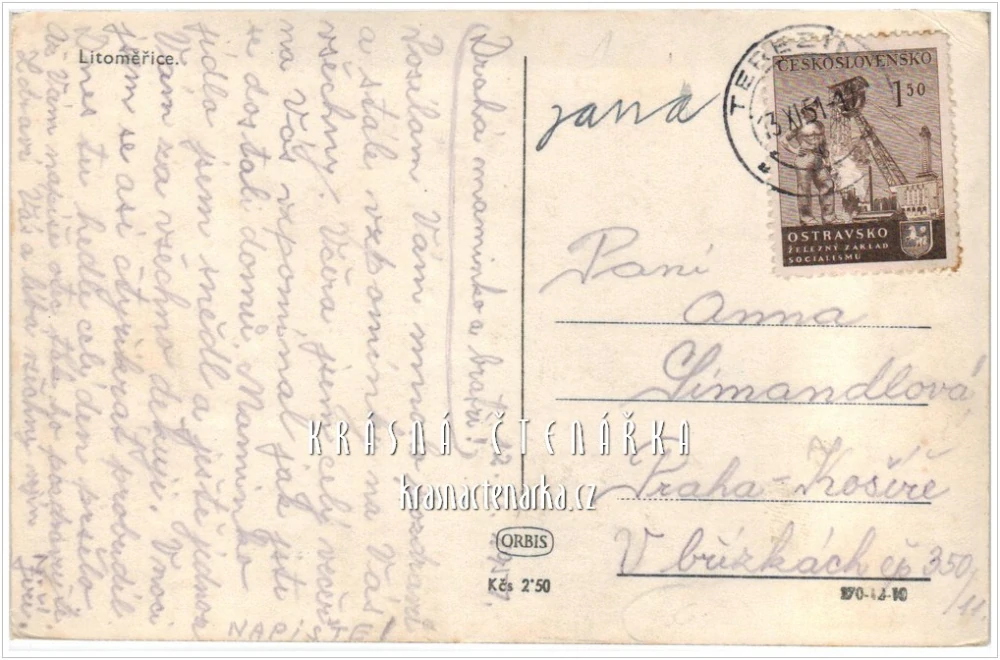 Litoměřice.
12
Drahá maminko a bratři!
Posélám Vám mnoho pozdravů
a stále vzpomínám na Vás
všechny. Včera jsem celý večer
na Vás vzpomínal jak jste
se dostali domů. Maminko
jídlo jsem snědl a ještě jednou
Vám za všechno děkuji. V noci
jsem se asi čtyřikrát probudil
Dnes tu hustě celý den pršelo
Až Vám napíše otec tak ho pozdravujte
Zdraví Vás a líbá všechny Váš
NAPIŠTE!
jana
TEREZÍN
13.XI.51
ČESKOSLOVENSKO
1 50
OSTRAVSKO
ŽELEZNÝ ZÁKLAD
SOCIALISMU
Paní
Anna
Šimandlová
Praha-Košíře
V břízkách čp 350
/11
KRÁSNÁ ČTENÁŘKA
krasnactenarka.cz
ORBIS
Kčs 2·50